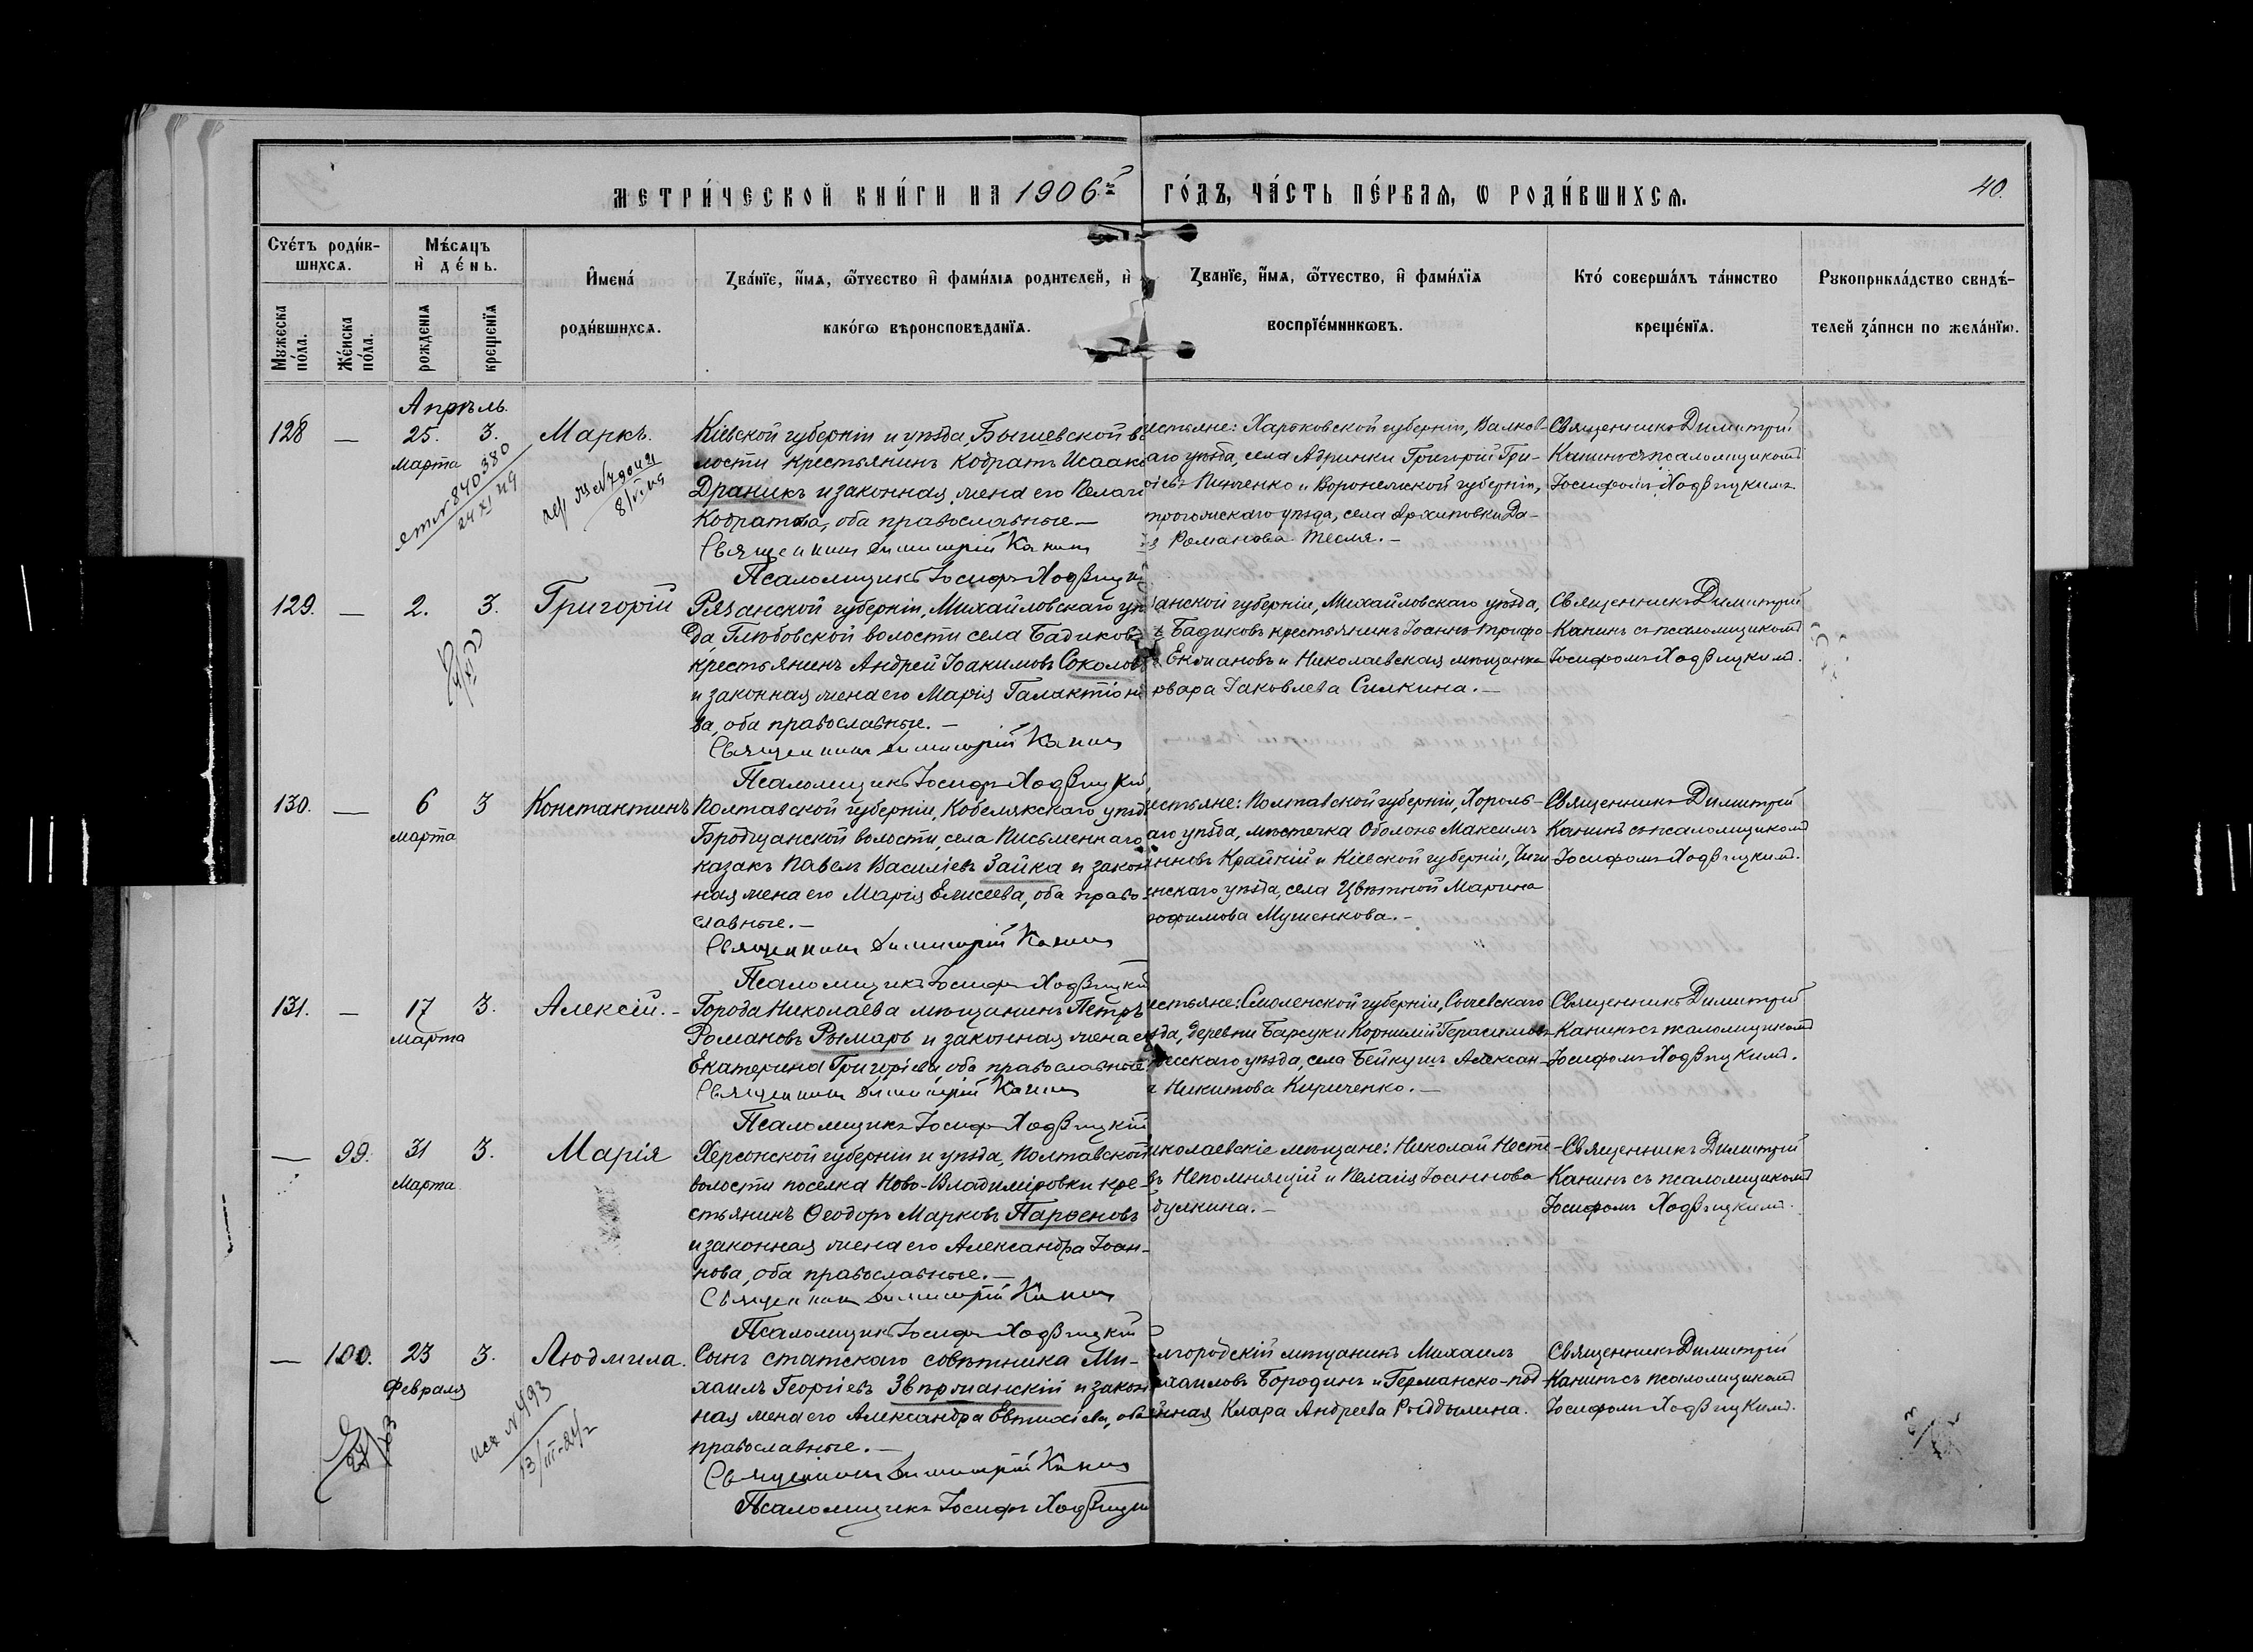 МЕТРИ́ЧЕСКОЙ КНИ́ГИ НА 1906й ГО́ДЪ, ЧА́СТЬ ПЕ́РВАѦ, Ѡ РОДИ́ВШИХСѦ.
40.
Счетъ родив-
шихсѧ.
Мужеска пола.
Женска пола.
Мѣсѧцъ
и день.
рожденіѧ
крещеніѧ
Имена
родившихсѧ.
Званїе, имѧ, ѿчество и фамиліѧ родителей, и
какогѡ вѣроисповѣданїѧ.
Званїе, имѧ, ѿчество, и фамилїѧ
воспрїемникѡвъ.
Кто совершалъ таинство
крещенїѧ.
Рукоприкладство свидѣ-
телей записи по желанїю.
Апрѣль.
128 — 25. 3. Маркъ.
Марта
840380
24 XI 49
Кіевской губерніи и уѣзда Бышевской во
лости крестьянинъ Кодратъ Исаако
Драникъ и законная жена его Пелагі
Кодратова, оба православные.—
Священникъ Димитрій Канинъ
Псаломщикъ Іосифъ Ходзицк
естьяне: Харьковской губерніи, Валков-
аго уѣзда, села Адринки Григорій Гри-
оіевъ Пинченко и Воронежской губерніи,
трогожскаго уѣзда, села Архиповки Да-
Романова Тесля.—
Священникъ Димитрій
Канинъ съ псаломщикомъ
Іосифомъ Ходзицкимъ
129. — 2. 3. Григорій
Рязанской губерніи, Михайловскаго уѣ
да, Глѣбовской волости села Бадиковъ
крестьянинъ Андрей Іоакимовъ Соколов
и законная жена его Марія Галактіоно
ва, оба православные.—
Священникъ Димитрій Канинъ
Псаломщикъ Іосифъ Ходзицкій
занской губерніи, Михайловскаго уѣзда,
Бадиковъ крестьянинъ Іоаннъ Трифо-
Екжановъ и Николаевская мѣщанка
рвара Іаковлева Силкина.—
Священникъ Димитрій
Канинъ съ псаломщикомъ
Іосифомъ Ходзицкимъ.
130. — 6 3 Константинъ
марта
Полтавской губерніи, Кобелякскаго уѣзд
Бродщанской волости, села Письменнаго
казакъ Павелъ Василіевъ Зайка и закон
ная жена его Марія Елисеева, оба право-
славные.—
Священникъ Димитрій Канинъ
Псаломщикъ Іосифъ Ходзицкій
естьяне: Полтавской губерніи, Хороль-
аго уѣзда, мѣстечка Оболонь Максимъ
анновъ Крайній и Кіевской губерніи, Чиги
енскаго уѣзда, села Цвѣтной Марина
рофимова Мушенкова.—
Священникъ Димитрій
Канинъ съ псаломщикомъ
Іосифомъ Ходзицкимъ.
131. — 17 3. Алексій.—
Марта
Города Николаева мѣщанинъ Петръ
Романовъ Рымаръ и законная жена ег
Екатерина Григоріева, оба православные
Священникъ Димитрій Канинъ
Псаломщикъ Іосифъ Ходзицкій
естьяне: Смоленской губерніи, Сычевскаго
зда, деревни Барсуки Корнилій Герасимовъ
десскаго уѣзда, села Бейкушъ Алексан-
Никитова Кириченко.—
Священникъ Димитрій
Канинъ съ псаломщикомъ
Іосифомъ Ходзицкимъ.
— 99. 31 3. Марія
Марта
Херсонской губерніи и уѣзда, Полтавской
волости поселка Ново-Владиміровки кре-
стьянинъ Ѳеодоръ Марковъ Парѳеновъ
и законная жена его Александра Іоан-
нова, оба православные.—
Священникъ Димитрій Канинъ
Псаломщикъ Іосифъ Ходзицкій
иколаевскіе мѣщане: Николай Несте-
въ Непомнящій и Пелагія Іоаннова
булкина.—
Священникъ Димитрій
Канинъ съ псаломщикомъ
Іосифомъ Ходзицкимъ.
— 100. 23 3. Людмила.
Февраля
исх N 493
13/III-24
Сынъ статскаго совѣтника Ми-
хаилъ Георгіевъ Звѣржанскій и закон
ная жена его Александра Евтихіева, оба
православные.—
Священникъ Димитрій Канинъ
Псаломщикъ Іосифъ Ходзицкі
лгородскій мѣщанинъ Михаилъ
ихаиловъ Бородинъ и Германско-под-
анная Клара Андреева Риддылина.
Священникъ Димитрій
Канинъ съ псаломщикомъ
Іосифомъ Ходзицкимъ.